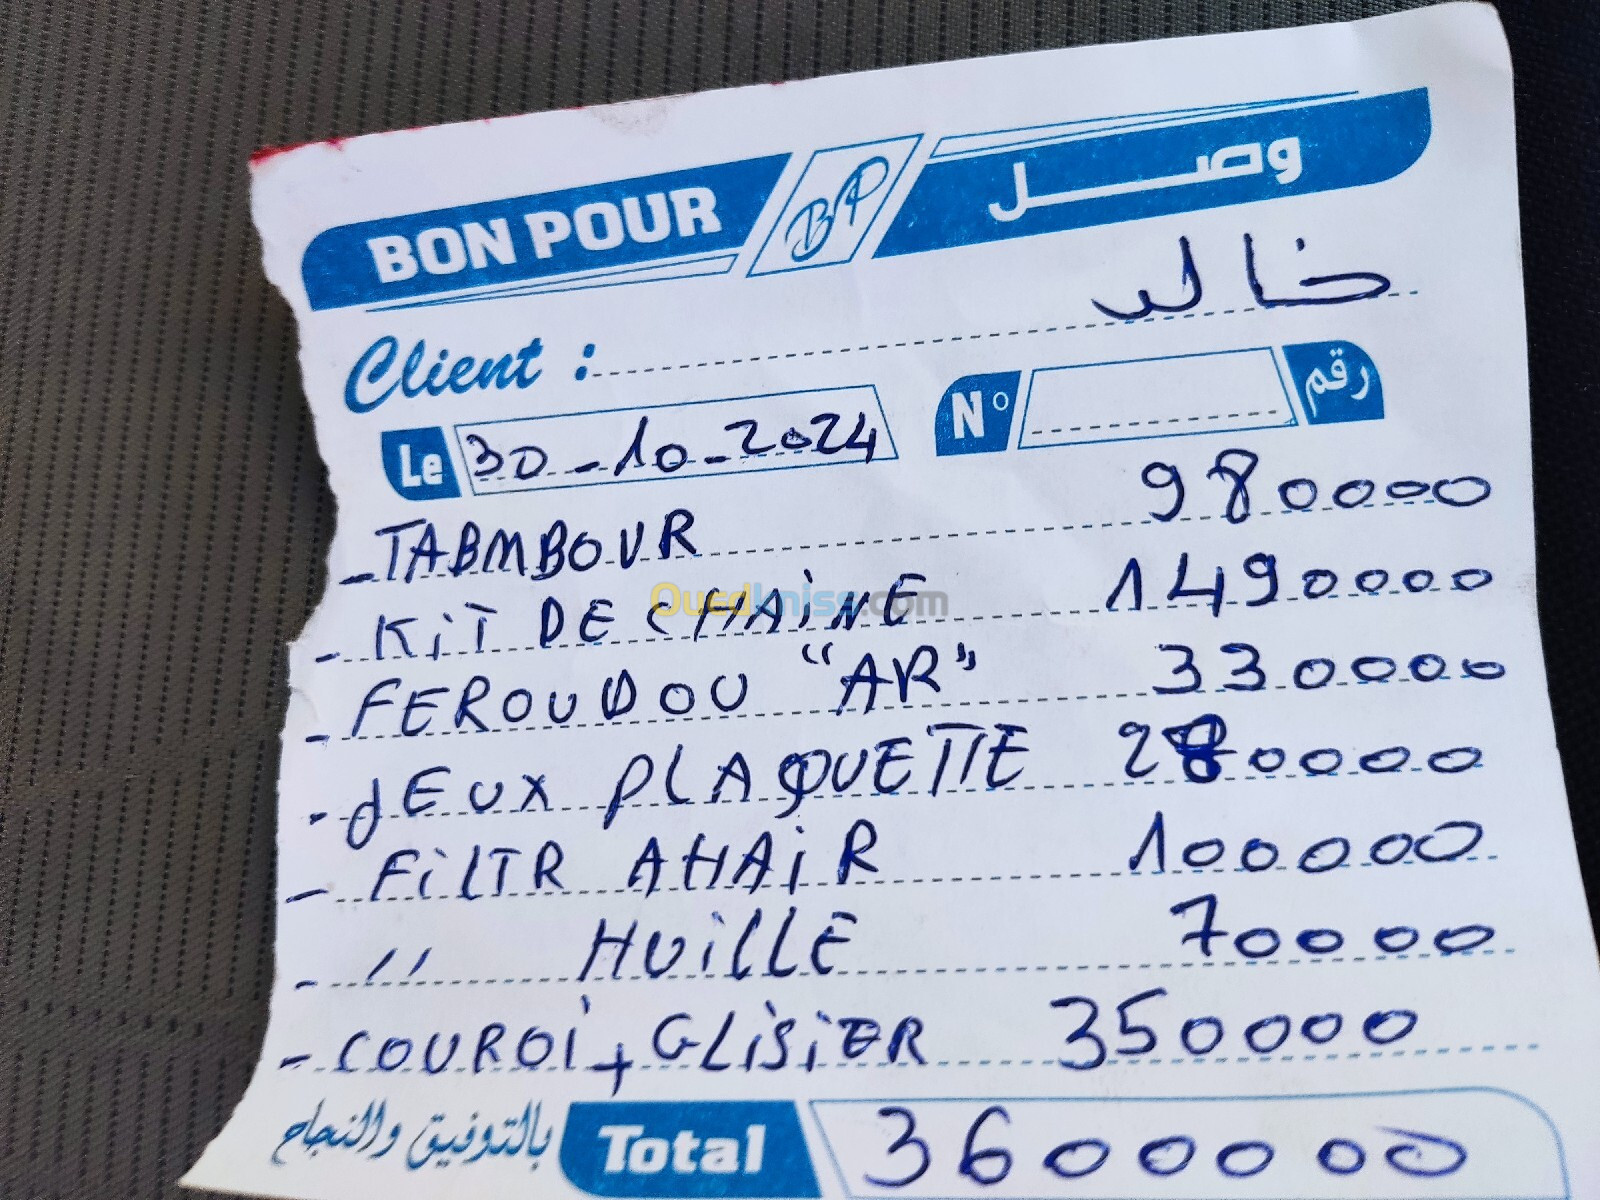 BON POUR BP وصل
Client : خالد
Le 30-10-2024 N° رقم
- TABMBOUR 980000
- KiT DE CHAiNE 1490000
- FEROUDOU "AR" 330000
- dEUX PLAQUETTE 280000
- FiLTR AHAiR 100000
- // HUiLLE 70000
- COUROi + GLiSiER 350000
بالتوفيق والنجاح Total 3600000
Ouedkniss.com